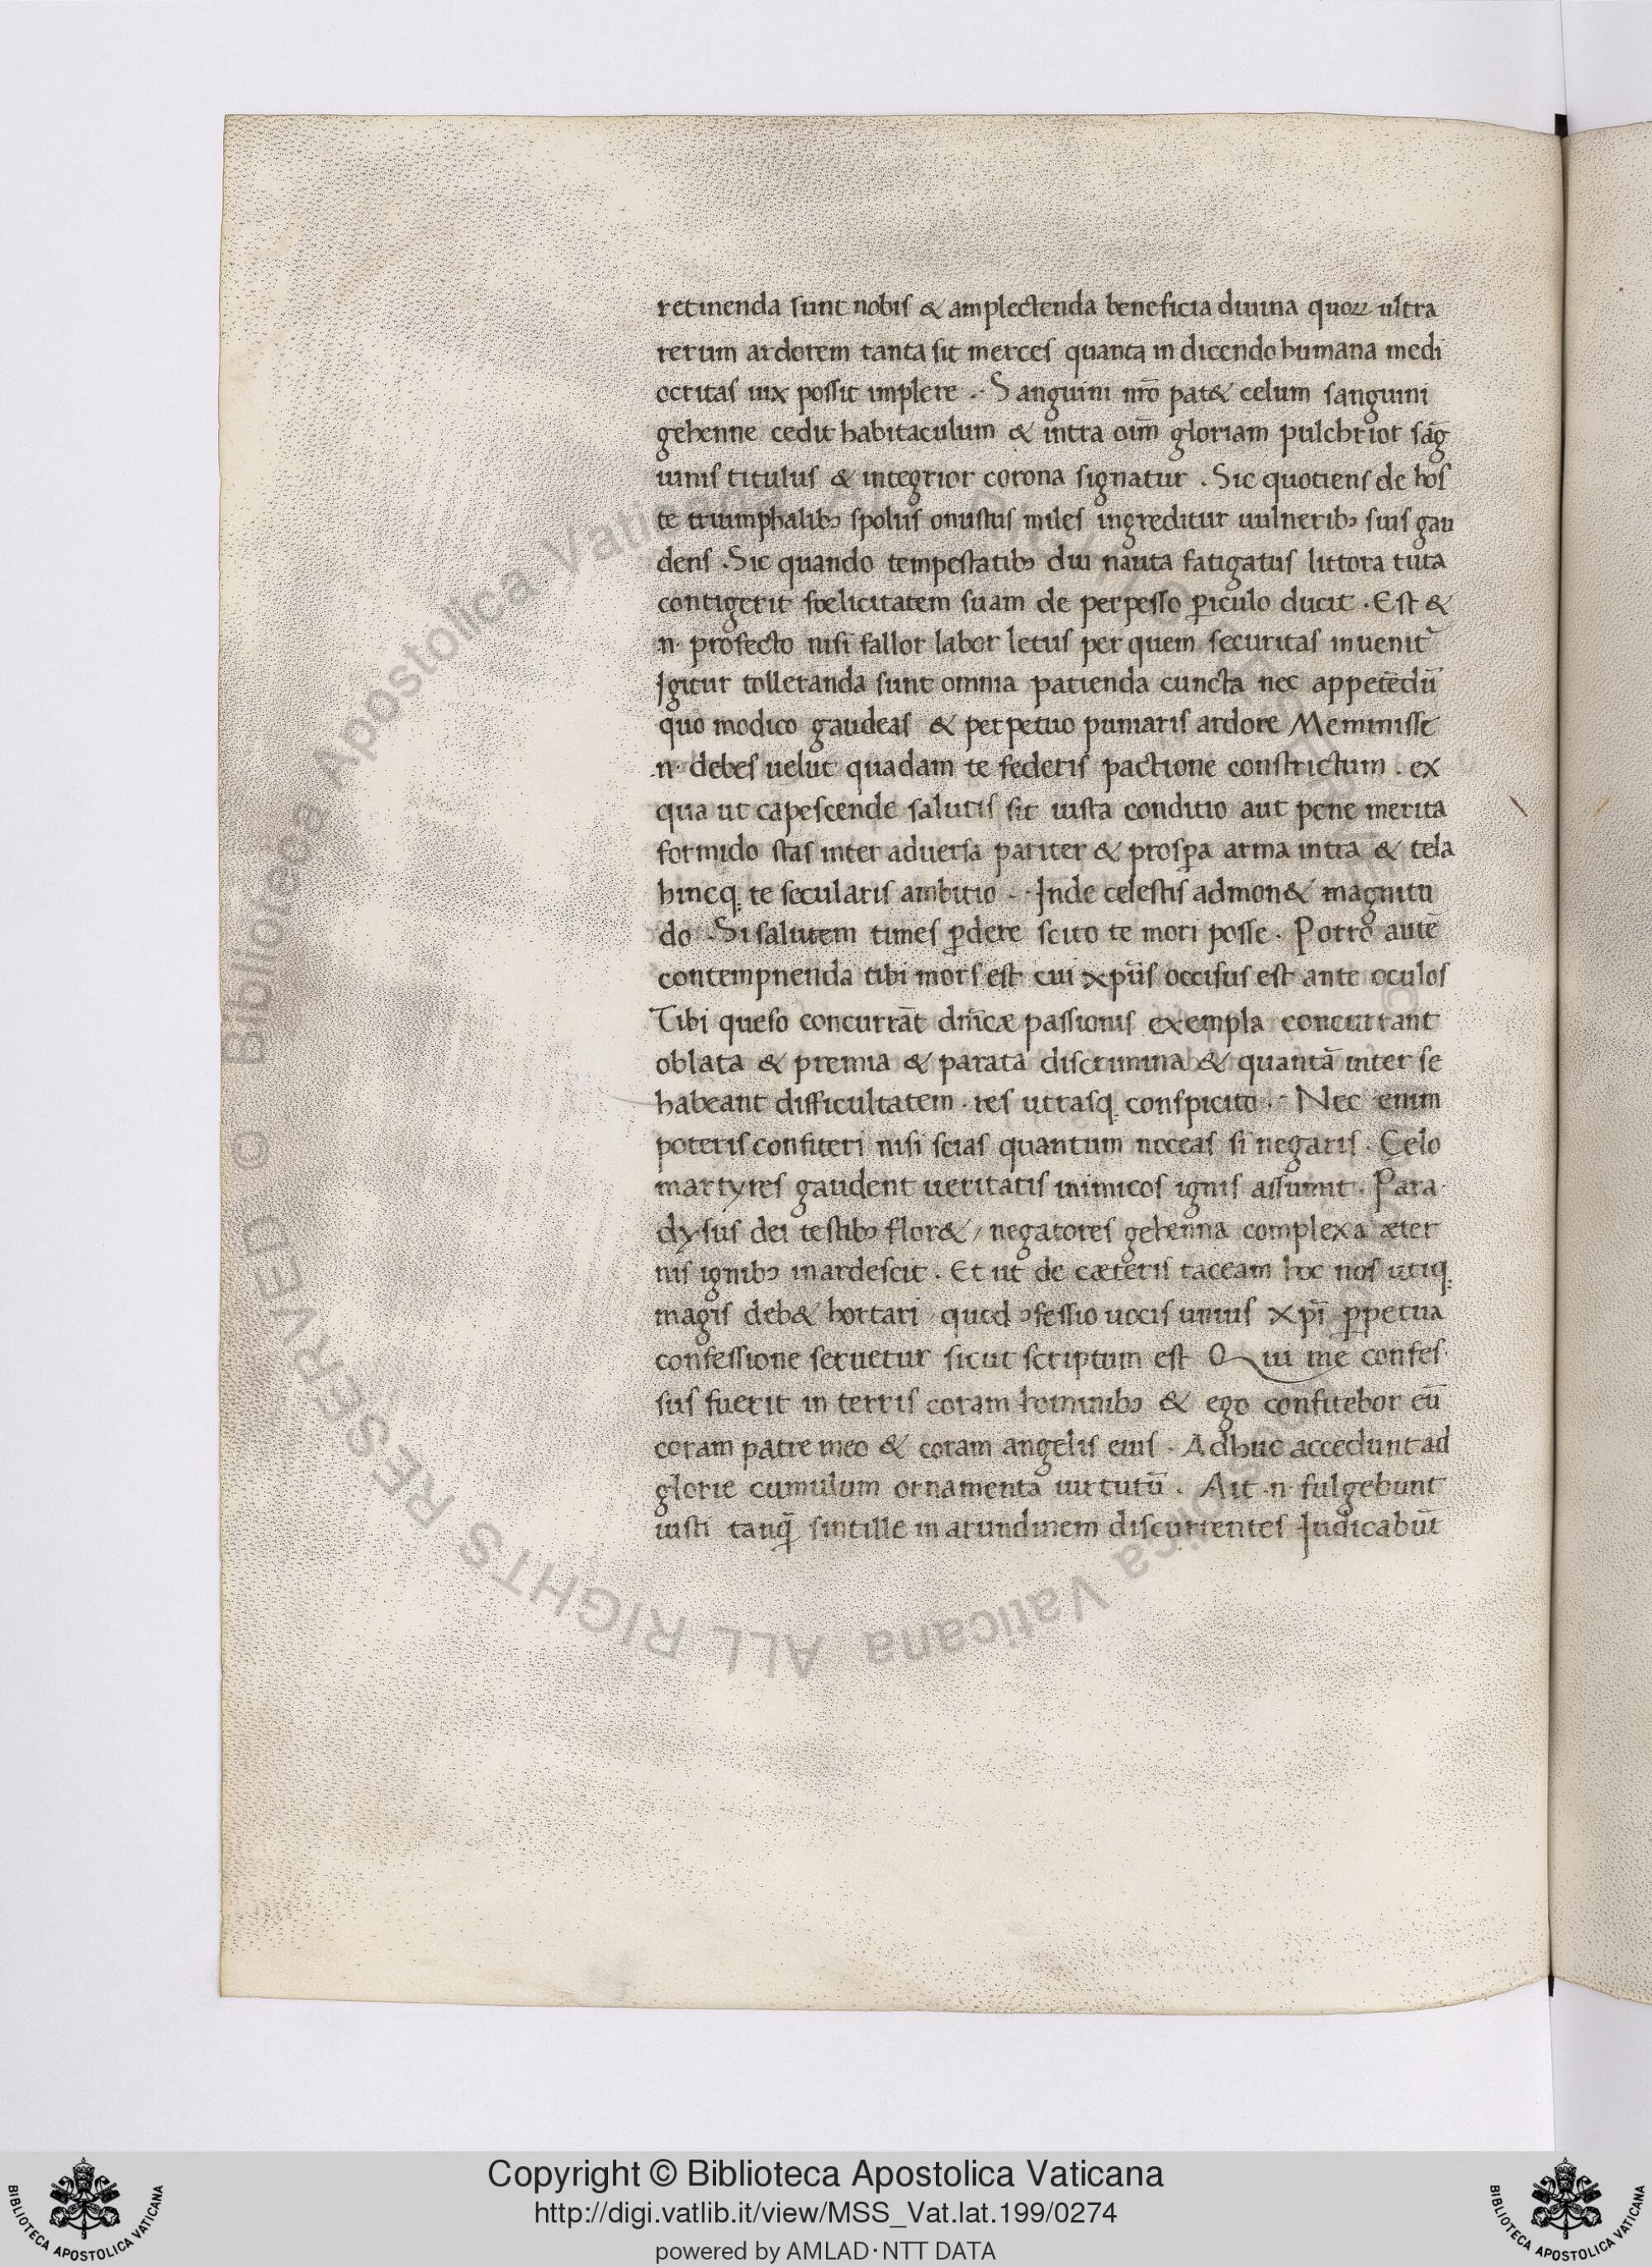 retinenda sunt nobis & amplectenda beneficia diuina quoꝝ ultra
rerum ardorem tanta sit merces quanta in dicendo humana medi
ocritas uix possit implere . Sanguini nr̄o pat& celum sanguini
gehenne cedit habitaculum & intra oīm gloriam pulchrior sāg
uinis titulus & integrior corona signatur . Sic quotiens de hos
te triumphalibꝫ spoliis onustus miles ingreditur uulneribꝫ suis gau
dens . Sic quando tempestatibꝫ diu nauta fatigatus littora tuta
contigerit foelicitatem suam de perpesso ꝑiculo ducit . Est &
.n. profecto nisi fallor labor letus per quem securitas inuenit᷑
Igitur tolleranda sunt omnia patienda cuncta nec appetēdū
quo modico gaudeas & perpetuo puniaris ardore Meminisse
.n. debes uelut quadam te federis pactione constrictum . ex
qua ut capescende salutis sit iusta conditio aut pene merita
formido stas inter aduersa pariter & prosꝑa arma intra & tela
hincq; te secularis ambitio . Inde celestis admon& magnitu
do . Si salutem times ꝑdere scito te mori posse . Porro autē
contempnenda tibi mors est cui xp̄us occisus est ante oculos
Tibi queso concurrāt dn̄icæ passionis exempla concurrant
oblata & premia & parata discrimina & quantā inter se
habeant difficultatem . res utrasq; conspicito . Nec enim
poteris confiteri nisi scias quantum noceas si negaris . Celo
martyres gaudent ueritatis inimicos ignis assumit . Para
dysus dei testibꝫ flor& / negatores gehenna complexa æter
nis ignibꝫ inardescit . Et ut de cæteris taceam hoc nos utiq;
magis deb& hortari quod ꝯfessio uocis unius xp̄i ꝑpetua
confessione seruetur sicut scriptum est Qui me confes
sus fuerit in terris coram hominibꝫ & ego confitebor eū
coram patre meo & coram angelis eius . Adhuc accedunt ad
glorie cumulum ornamenta uirtutū . Ait .n. fulgebunt
iusti tanq̄ sintille in arundinem discurrentes Iudicabūt
Copyright © Biblioteca Apostolica Vaticana
http://digi.vatlib.it/view/MSS_Vat.lat.199/0274
powered by AMLAD·NTT DATA
BIBLIOTECA APOSTOLICA VATICANA
BIBLIOTECA APOSTOLICA VATICANA